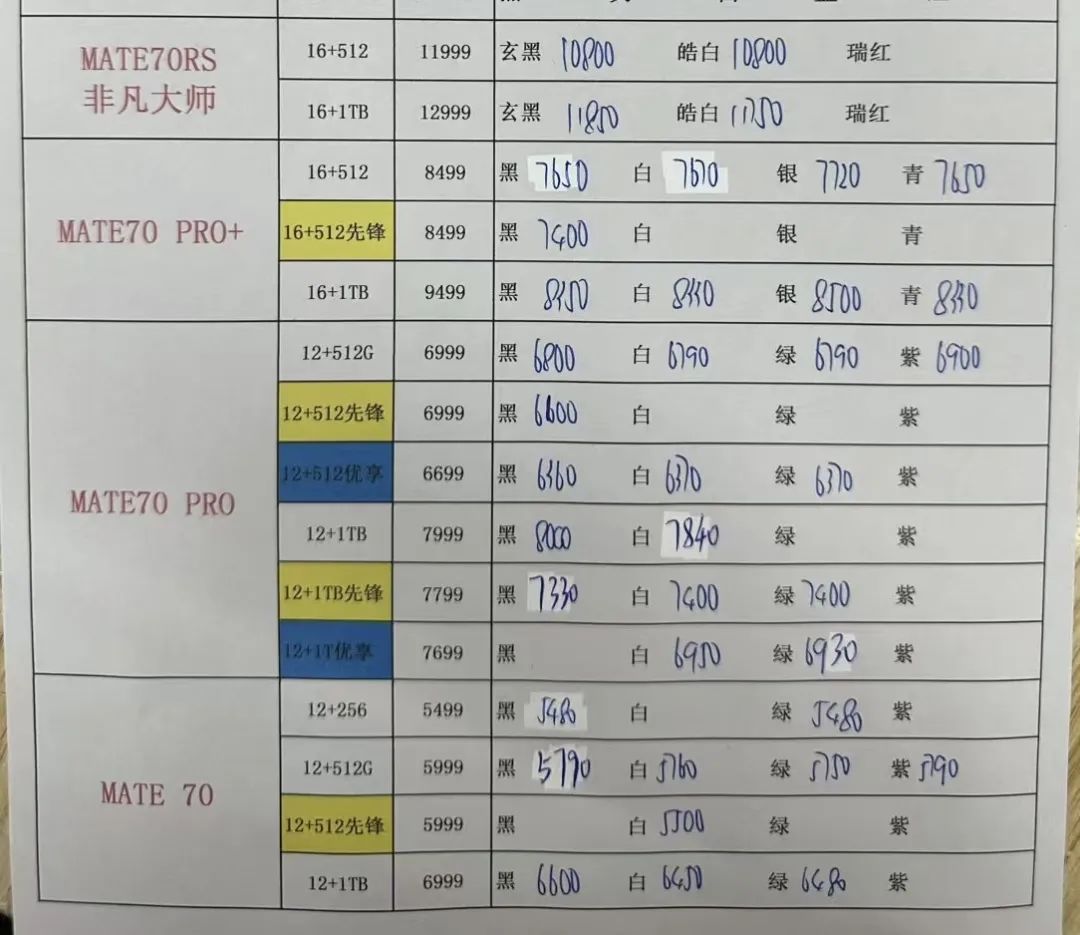 MATE70RS
非凡大师
16+512 11999 玄黑 10800 皓白 10800 瑞红
16+1TB 12999 玄黑 11850 皓白 11750 瑞红
MATE70 PRO+
16+512 8499 黑 7650 白 7670 银 7720 青 7650
16+512先锋 8499 黑 7400 白 银 青
16+1TB 9499 黑 白 银 8500 青
MATE70 PRO
12+512G 6999 黑 6800 白 6790 绿 6790 紫 6900
12+512先锋 6999 黑 6600 白 绿 紫
12+512优享 6699 黑 6360 白 6370 绿 6370 紫
12+1TB 7999 黑 8000 白 7840 绿 紫
12+1TB先锋 7799 黑 7330 白 7400 绿 7400 紫
12+1T优享 7699 黑 白 6950 绿 6930 紫
MATE 70
12+256 5499 黑 5480 白 绿 5480 紫
12+512G 5999 黑 5790 白 5760 绿 5750 紫 5790
12+512先锋 5999 黑 白 5500 绿 紫
12+1TB 6999 黑 6600 白 6450 绿 6480 紫